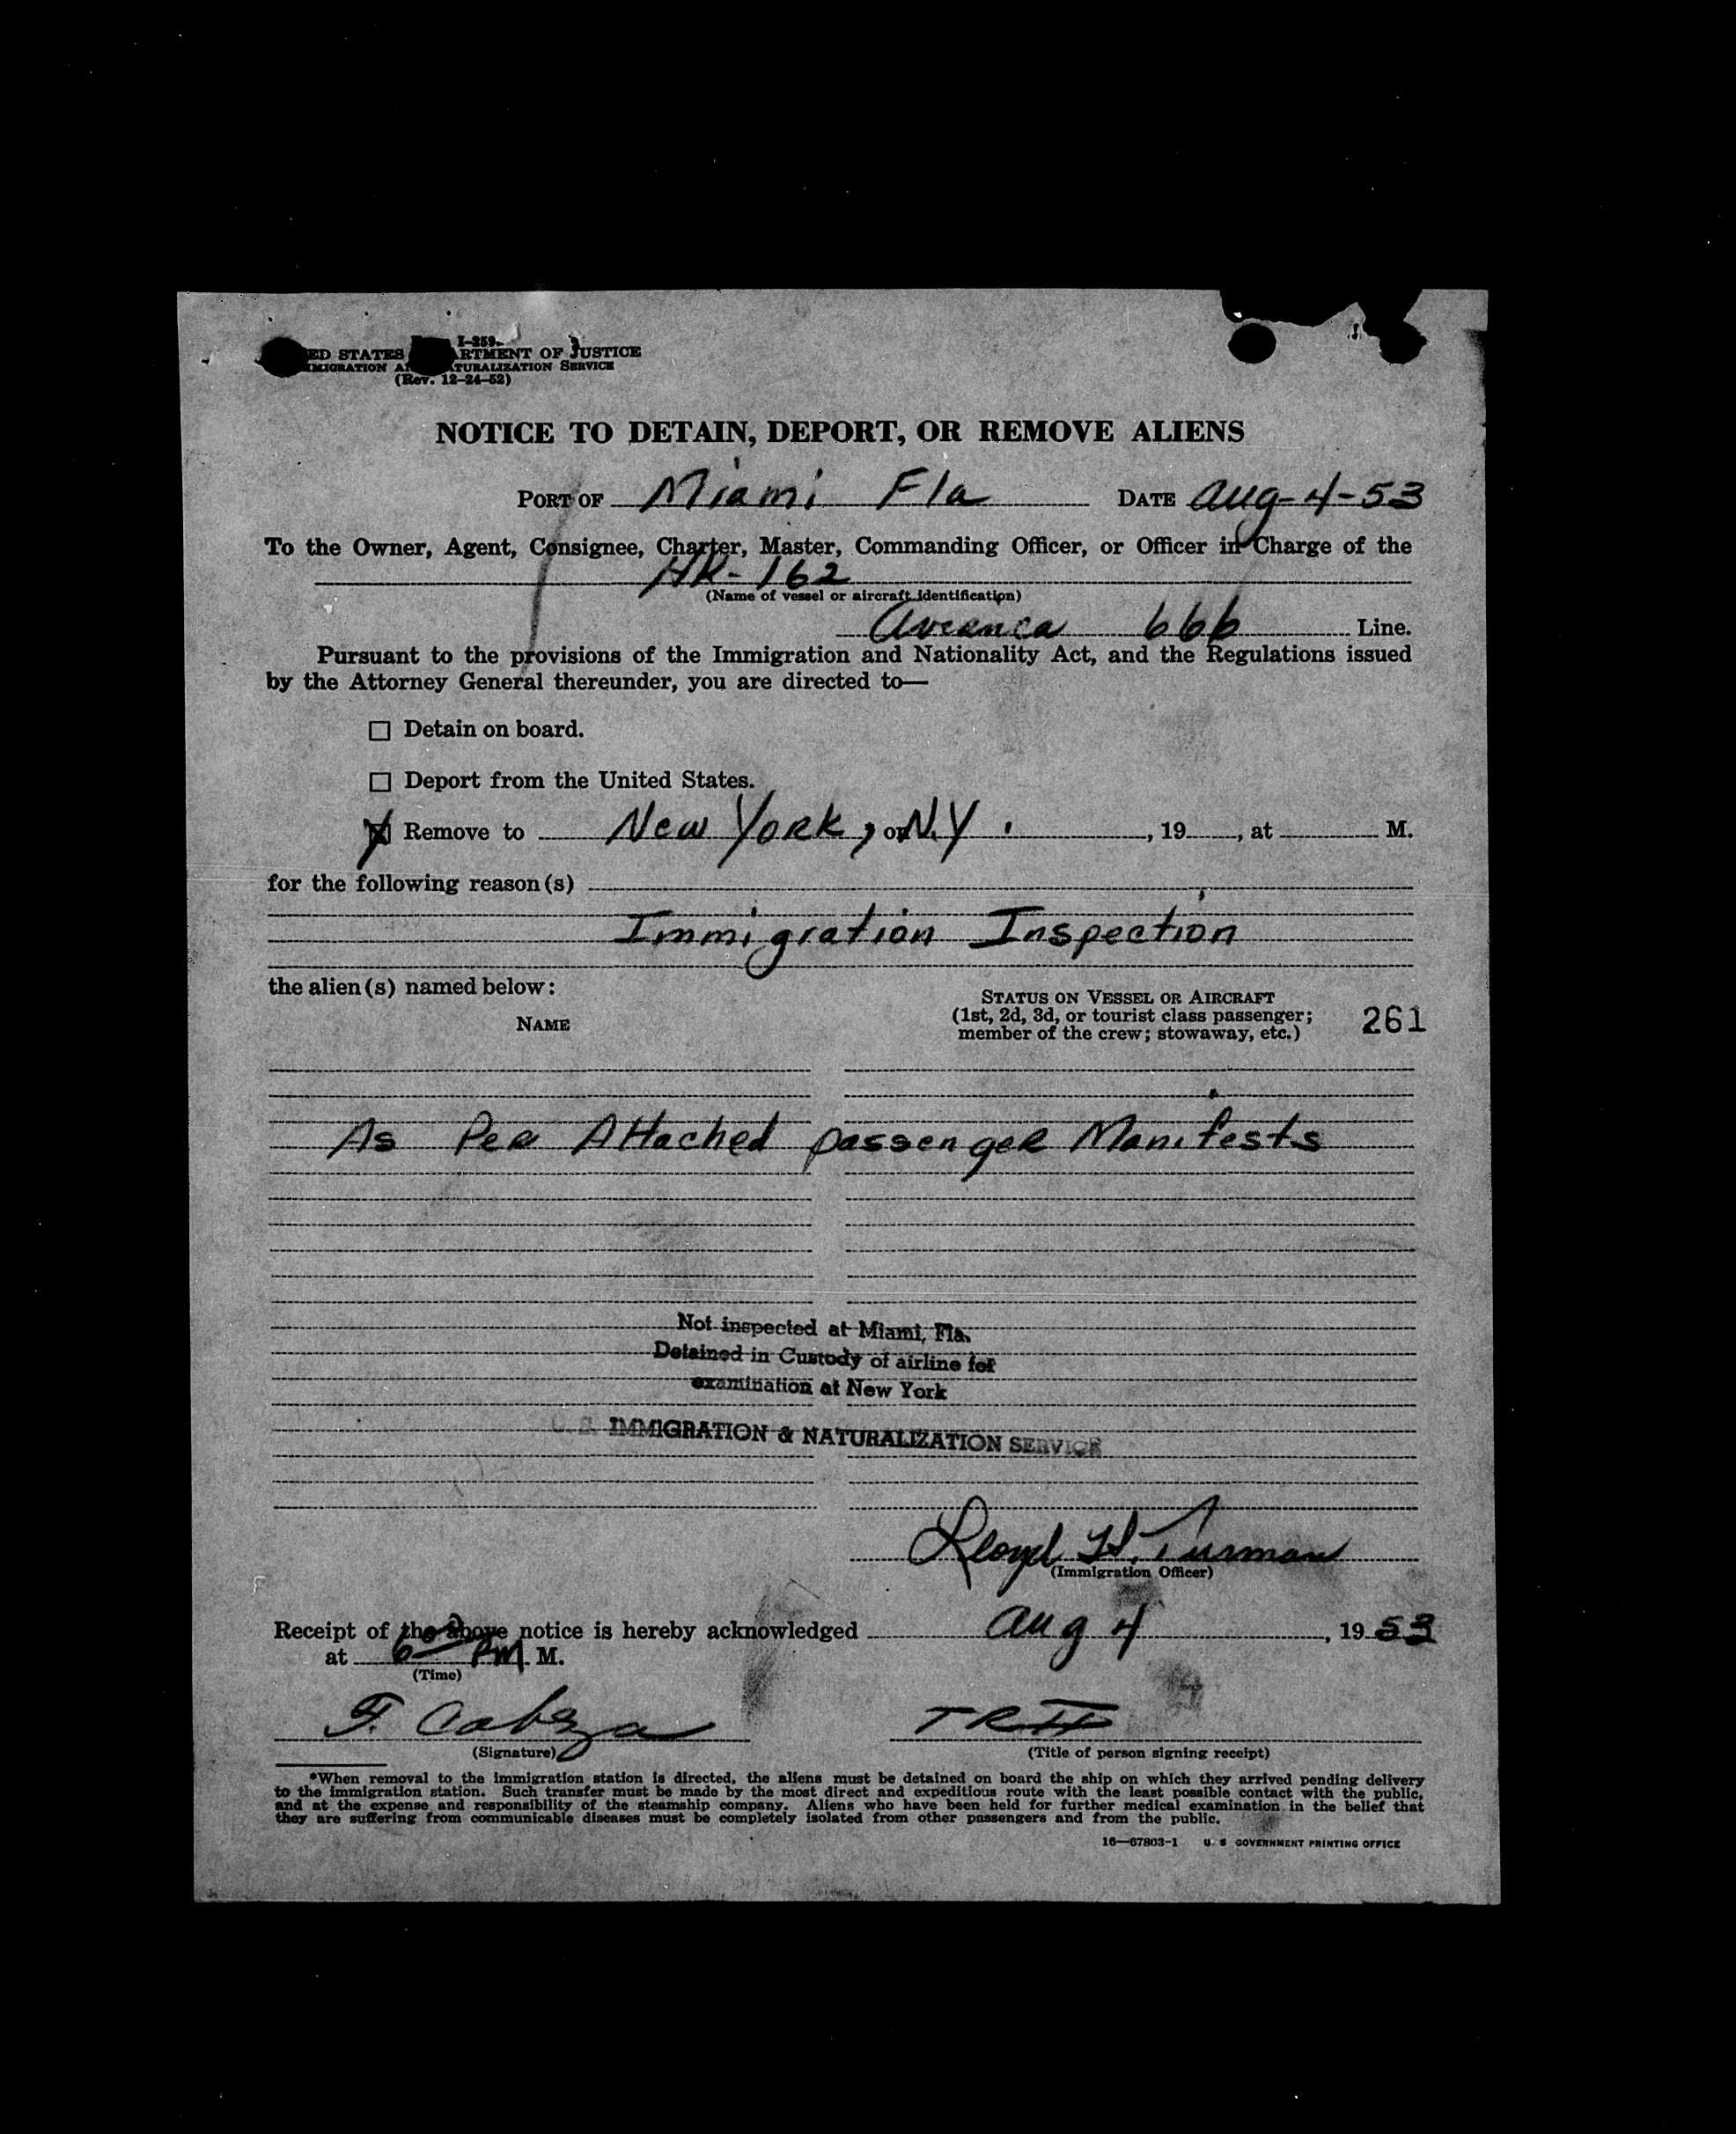 I-259
ED STATES ARTMENT OF JUSTICE
MIGRATION AN ATURALIZATION SERVICE
(Rev. 12-24-52)
NOTICE TO DETAIN, DEPORT, OR REMOVE ALIENS
PORT OF Miami Fla DATE Aug-4-53
To the Owner, Agent, Consignee, Charter, Master, Commanding Officer, or Officer in Charge of the
HK-162
(Name of vessel or aircraft identification)
Avianca 666 Line.
Pursuant to the provisions of the Immigration and Nationality Act, and the Regulations issued
by the Attorney General thereunder, you are directed to—
☐ Detain on board.
☐ Deport from the United States.
☒ Remove to New York, on N.Y. , 19 , at M.
for the following reason(s)
Immigration Inspection
the alien(s) named below:
NAME
STATUS ON VESSEL OR AIRCRAFT
(1st, 2d, 3d, or tourist class passenger;
member of the crew; stowaway, etc.)
261
As Per Attached passenger Manifests
Not inspected at Miami, Fla.
Detained in Custody of airline for
examination at New York
U. S. IMMIGRATION & NATURALIZATION SERVICE
Lloyd H. Turman
(Immigration Officer)
Receipt of the above notice is hereby acknowledged Aug 4, 1953
at 6 PM M.
(Time)
F. Cabeza
(Signature)
(Title of person signing receipt)
*When removal to the immigration station is directed, the aliens must be detained on board the ship on which they arrived pending delivery
to the immigration station. Such transfer must be made by the most direct and expeditious route with the least possible contact with the public,
and at the expense and responsibility of the steamship company. Aliens who have been held for further medical examination in the belief that
they are suffering from communicable diseases must be completely isolated from other passengers and from the public.
16—67803-1 U. S. GOVERNMENT PRINTING OFFICE